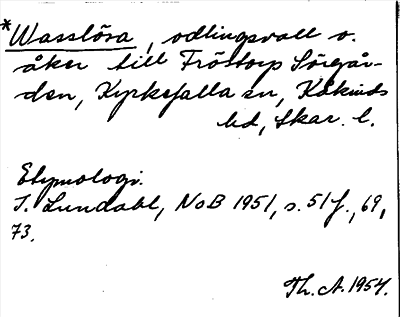 *Wasslösa, odlingsvall o.
åker till Fröstorp Sörgår-
den, Kyrkefalla sn, Kåkinds
hd, Skar. l.
Etymologi.
I. Lundahl, NoB 1951, s. 51 f., 69,
73.
Th. A. 1954.